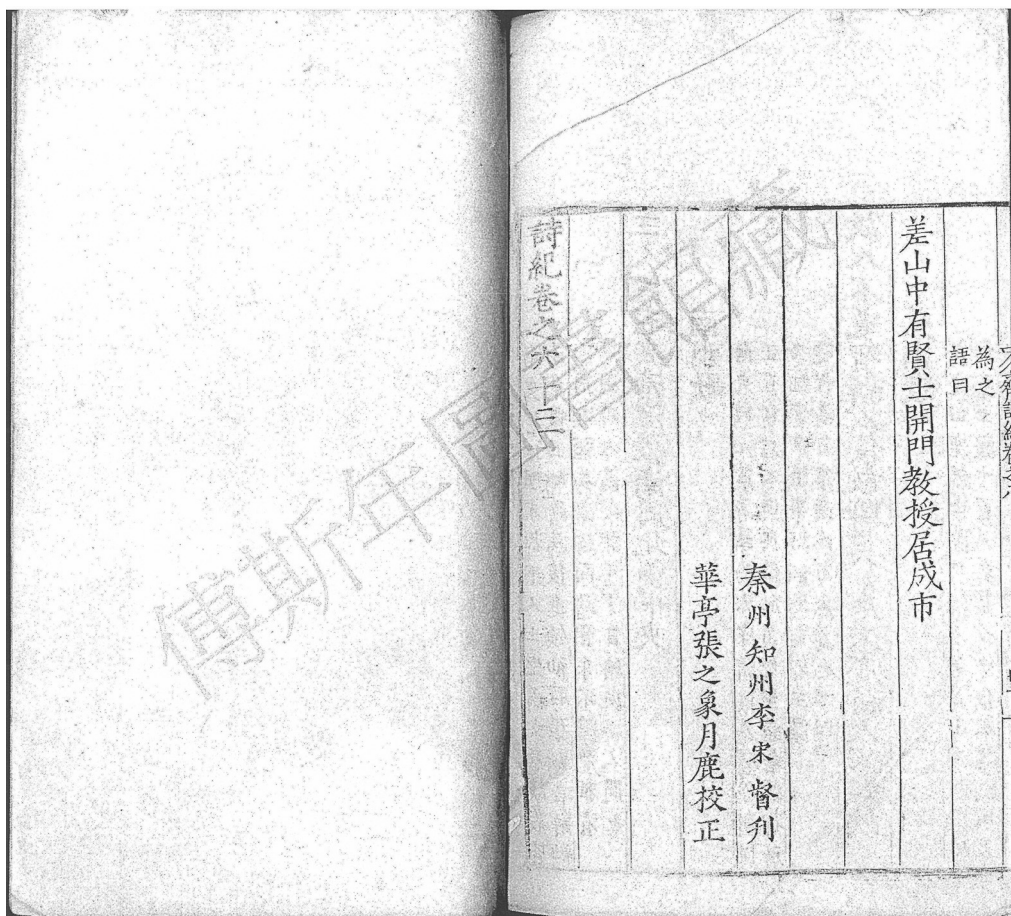 齊詩紀卷之八
為之
語曰
差山中有賢士開門教授居成市
秦州知州李宋督刋
華亭張之象月鹿校正
詩紀卷之六十三
傅斯年圖書館藏